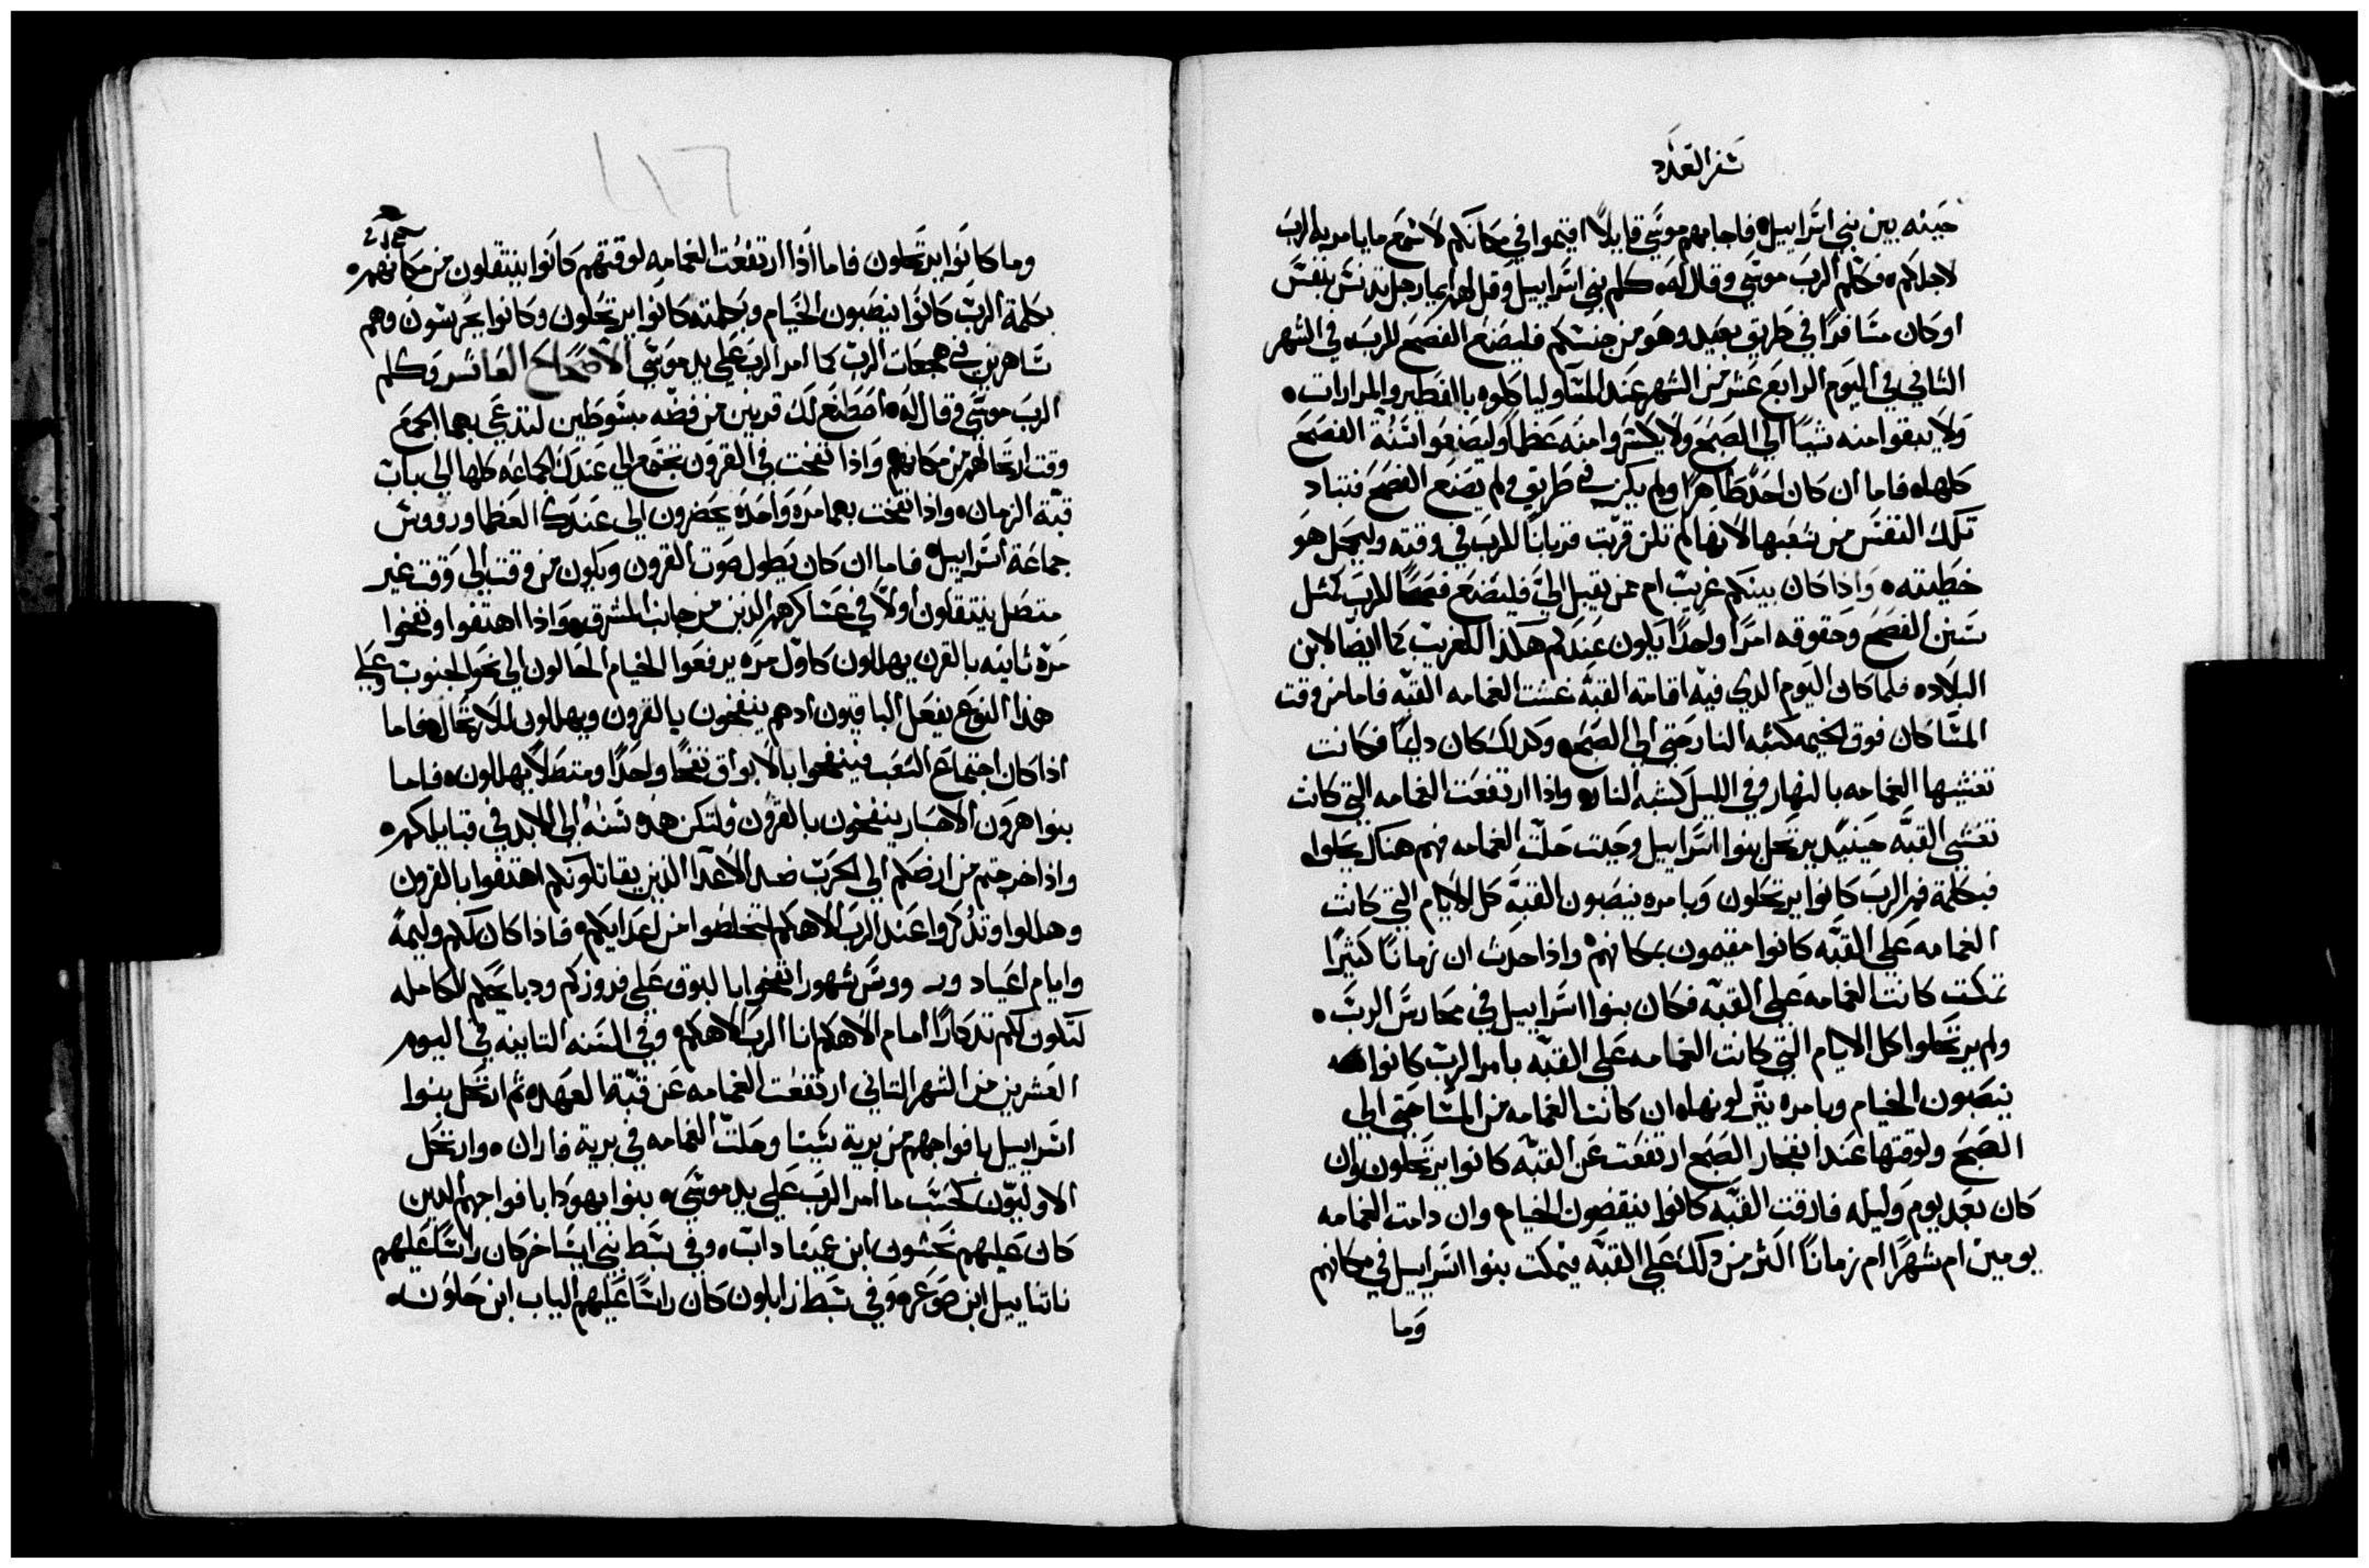 سفر العدد
حينه بين بني اسراييل فاجابهم موسي قايلا اقيموا في مكانكم لاسمع ما يامر به الرب
لاجلكم وكلم الرب موسي وقال له كلم بني اسراييل وقل لهم ايما رجل تدنس بنفس
او كان مسافرا في طريق بعيد وهو من جنسكم فليصنع الفصح للرب في الشهر
الثاني في اليوم الرابع عشر من الشهر عند المسا ولياكلوه بالفطير والمرارات
ولا يبقوا منه شيا الي الصبح ولا يكسروا منه عظما وليصنعوا سنة الفصح
كلها فاما ان كان احد طاهرا ولم يكن في طريق ولم يصنع الفصح فتباد
تلك النفس من شعبها لانها لم تكن قربت قربانا للرب في وقته وليحمل هو
خطيته واذا كان بينكم غريب ام من يقبل الي فليصنع فصحا للرب كمثل
سنن الفصح وحقوقه امرا واحدا يكون عندكم هكذا للغريب كما ايضا لابن
البلاد فلما كان اليوم الذي فيه اقامة القبه غشت الغمامه القبه فاما من وقت
المسا كان فوق الخيمه كشبه النار حتي الي الصبح وكذلك كان دايما فكانت
تغشيها الغمامه بالنهار وفي الليل كشبه النار واذا ارتفعت الغمامه التي كانت
تغشي القبه حينيد يرتحل بنوا اسراييل وحيت حلت الغمامه فهم هناك يحلوا
فبكلمة فم الرب كانوا يرتحلون وبامره ينصبون القبه كل الايام التي كانت
الغمامه علي القبه كانوا مقيمون بمكانهم واذا حدث ان زمانا كثيرا
تمكت كانت الغمامه علي القبه فكان بنوا اسراييل في محارس الرب
ولم يرتحلوا كل الايام التي كانت الغمامه علي القبه بامر الرب كانوا
ينصبون الخيام وبامره ينزلونها ان كانت الغمامه من المسا حتي الي
الصبح ولوقتها عند انفجار الصبح ارتفعت عن القبه كانوا يرتحلون وان
كان بعد يوم وليله فارقت القبه كانوا ينقضون الخيام وان دامت الغمامه
يومين ام شهرا ام زمانا اكثر من ذلك علي القبه فيمكت بنوا اسراييل في مكانهم
وما
وما كانوا يرتحلون فاما اذا ارتفعت الغمامه لوقتهم كانوا ينتقلون من مكانهم
بكلمة الرب كانوا ينصبون الخيام وبكلمته كانوا يرتحلون وكانوا يحرسون وهم
ساهرين في هجعات الرب كما امر الرب علي يد موسي الاصحاح العاشر وكلم
الرب موسي وقال له اصطنع لك قرنين من فضه مبسوطين لتدعي بهما الجمع
وقت ارتحالهم من مكانهم واذا نفخت في القرون يجتمع الي عندك الجماعه كلها الي باب
قبة الزمان واذا نفخت بهما مره واحده يحضرون الي عندك العظما ورووس
جماعة اسراييل فاما ان كان يطول صوت القرون ويكون من وقت الي وقت غير
متصل ينتقلون اولا في عساكرهم الذين من جانب المشرق واذا اهتفوا ونفخوا
مرة ثانيه بالقرن يهللون كاول مره يرفعوا الخيام الحالون الي نحو الجنوب وعلي
هذا النوع يفعل الباقيون ادهم ينفخون بالقرون ويهللون للارتحال فاما
اذا كان اجتماع الشعب فينفخوا بالابواق نفخا واحدا ومتصلا يهللون فاما
بنوا هرون الاحبار ينفخون بالقرون ولتكن هذه سنه الي الابد في قبايلكم
واذا خرجتم من ارضكم الي الحرب ضد الاعدا الذين يقاتلونكم اهتفوا بالقرون
وهللوا وتذكروا عند الرب الاهكم لتخلصوا من اعدايكم فاذا كان لكم وليمة
وايام اعياد ور ووس شهور انفخوا بالبوق علي فروزكم ودبايحكم الكامله
لتكون لكم تدكارا امام الاهكم انا الرب الاهكم وفي السنه التانيه في اليوم
العشرين من الشهر التاني ارتفعت الغمامه عن قبة العهد ثم ارتحل بنوا
اسراييل بافواجهم من برية سينا وحلت الغمامه في برية فاران وارتحل
الاوليون كحسب ما امر الرب علي يد موسي بنوا يهودا بافواجهم الدين
كان عليهم نحشون ابن عميناداب وفي سبط بني ايساخر كان راسا عليهم
ناتناييل ابن صوعر وفي سبط زابلون كان راسا عليهم الياب ابن حلون